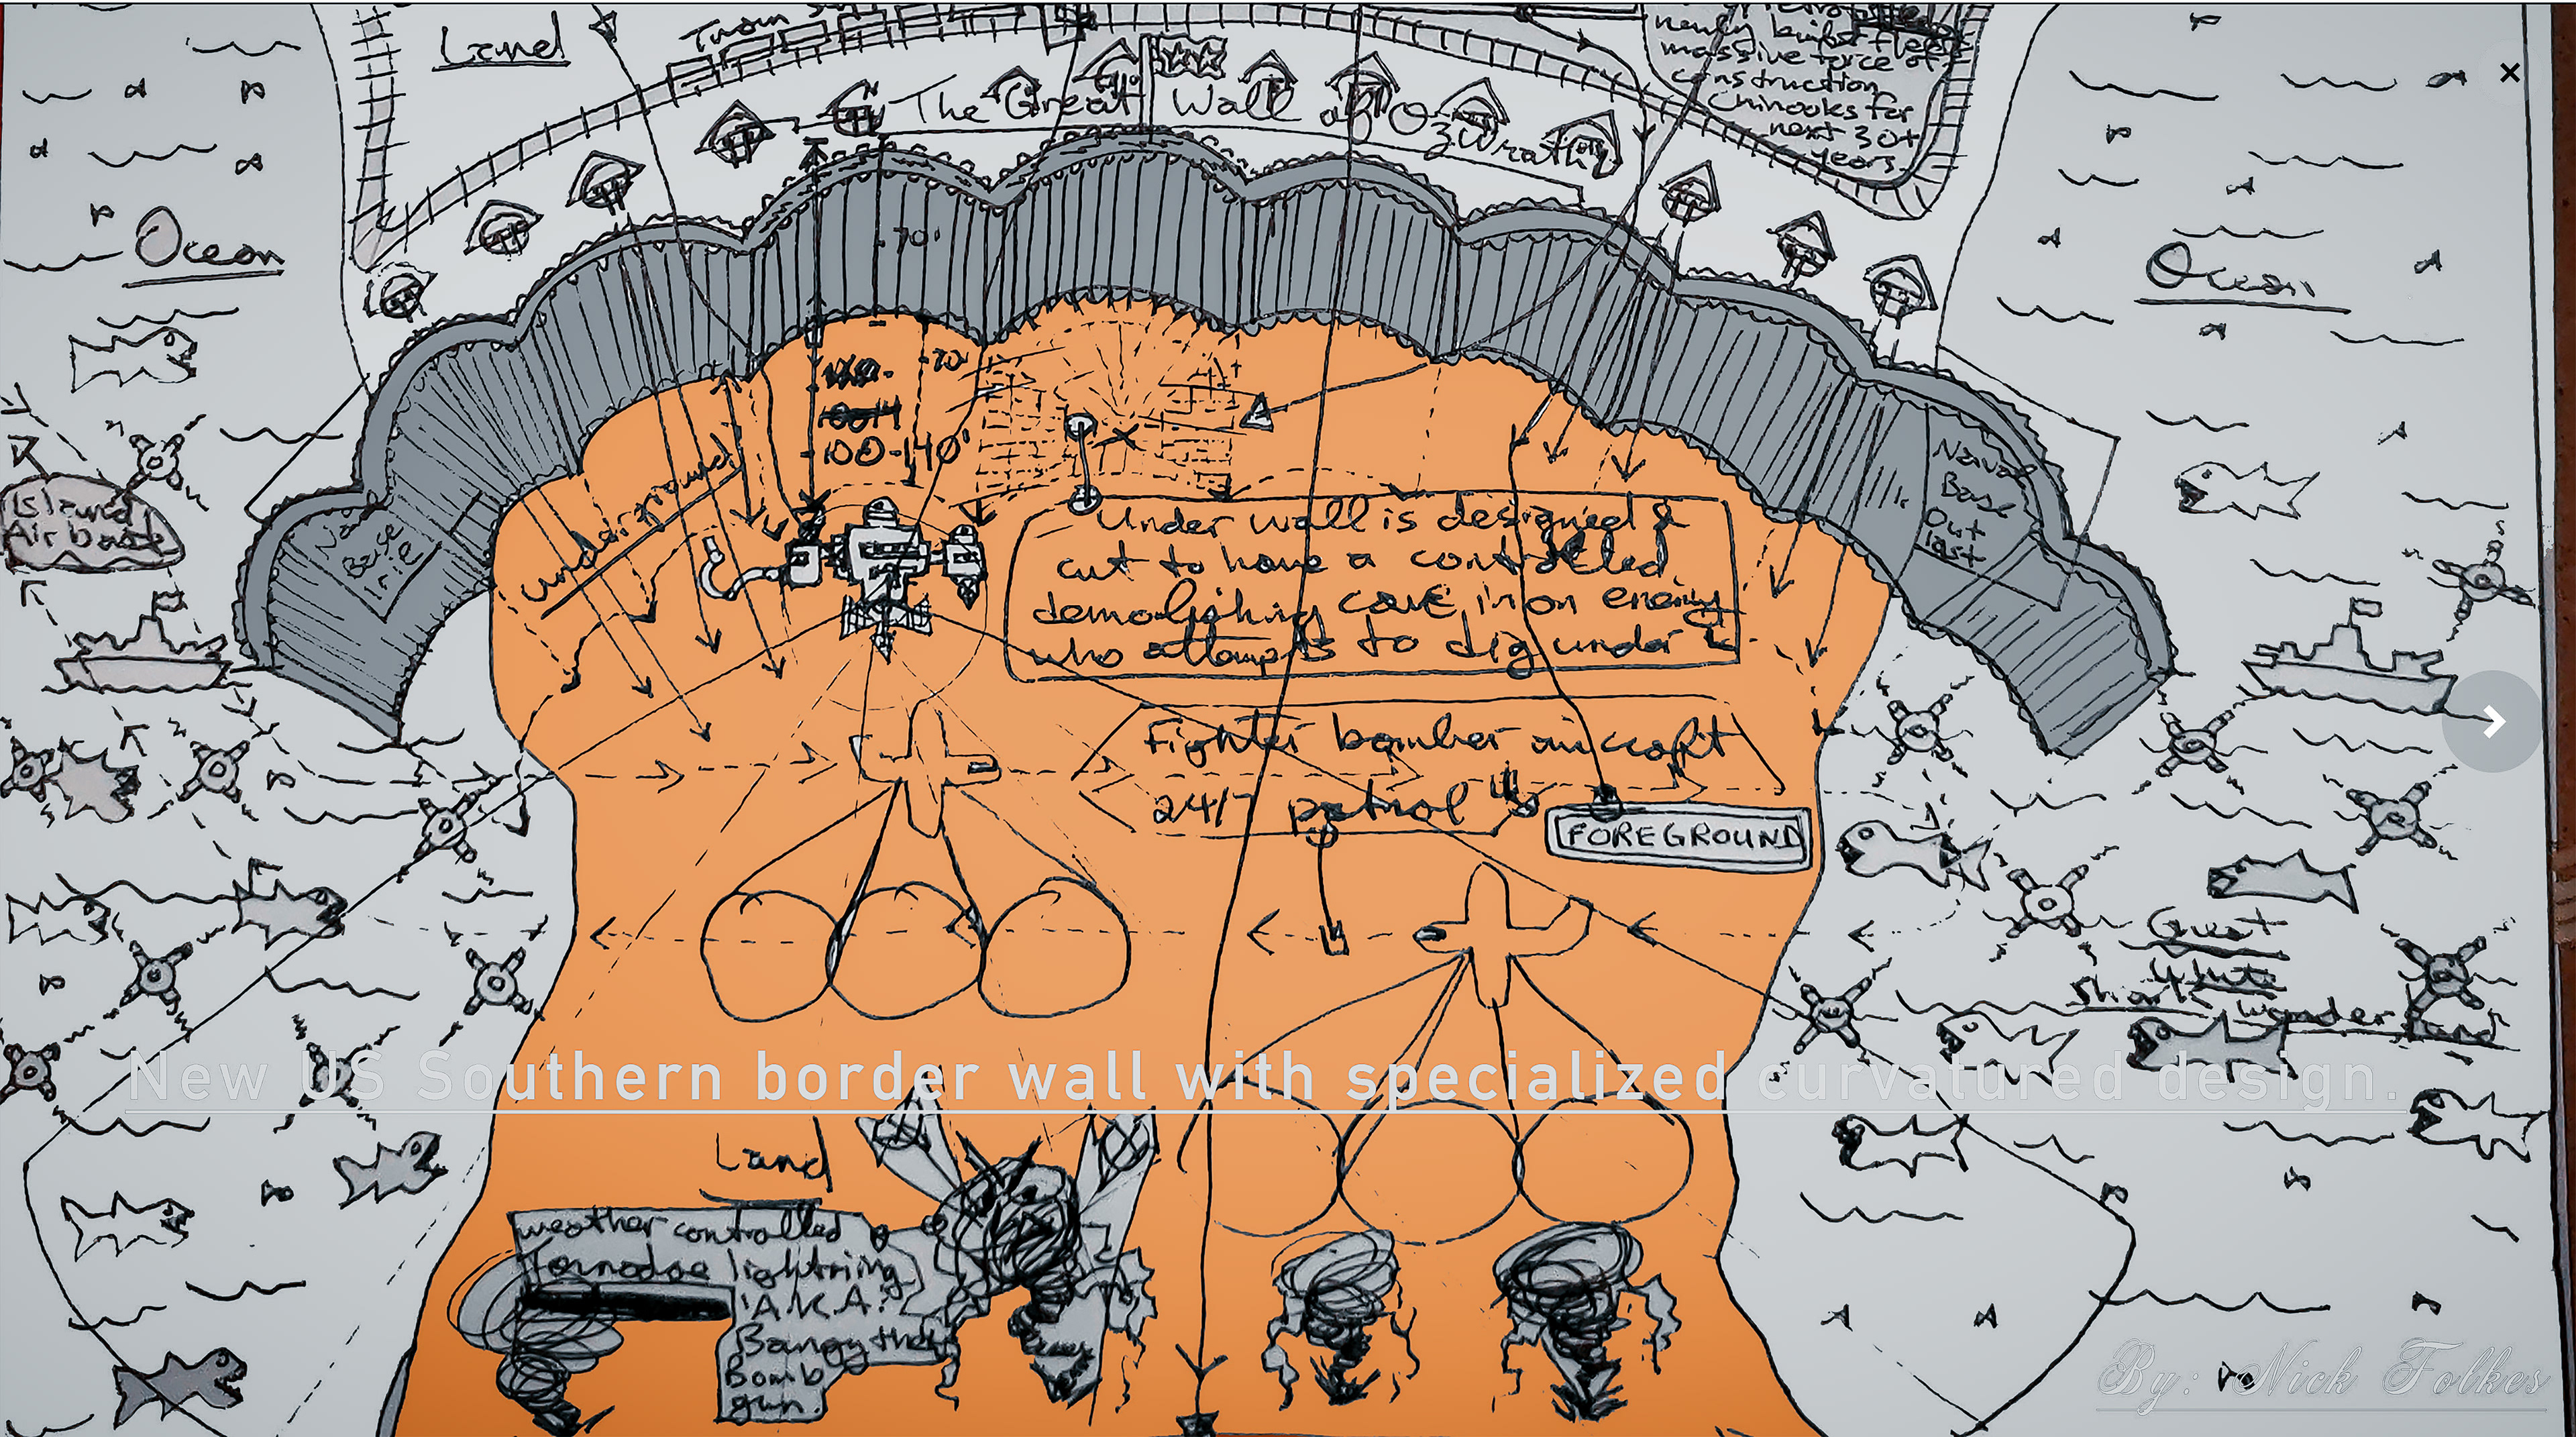 Land
Train
newly built fleet
massive force of
construction
Chinooks for
next 30+
years.
The Great Wall of OzWrath
Ocean
Ocean
70'
-70'
100-140'
underground
Island
Air base
Base
Naval
Base
Out
last
Under wall is designed &
cut to have a controlled
demolishing cave in on enemy
who attempts to dig under it
Fighter bomber aircraft
24/7 patrol
FOREGROUND
Great
White
Shark wonderland
New US Southern border wall with specialized curvatured design.
Land
weather controlled
Tornadoe lightning
A.K.A.
Bangy the
Bomb
gun.
By: Nick Folkes